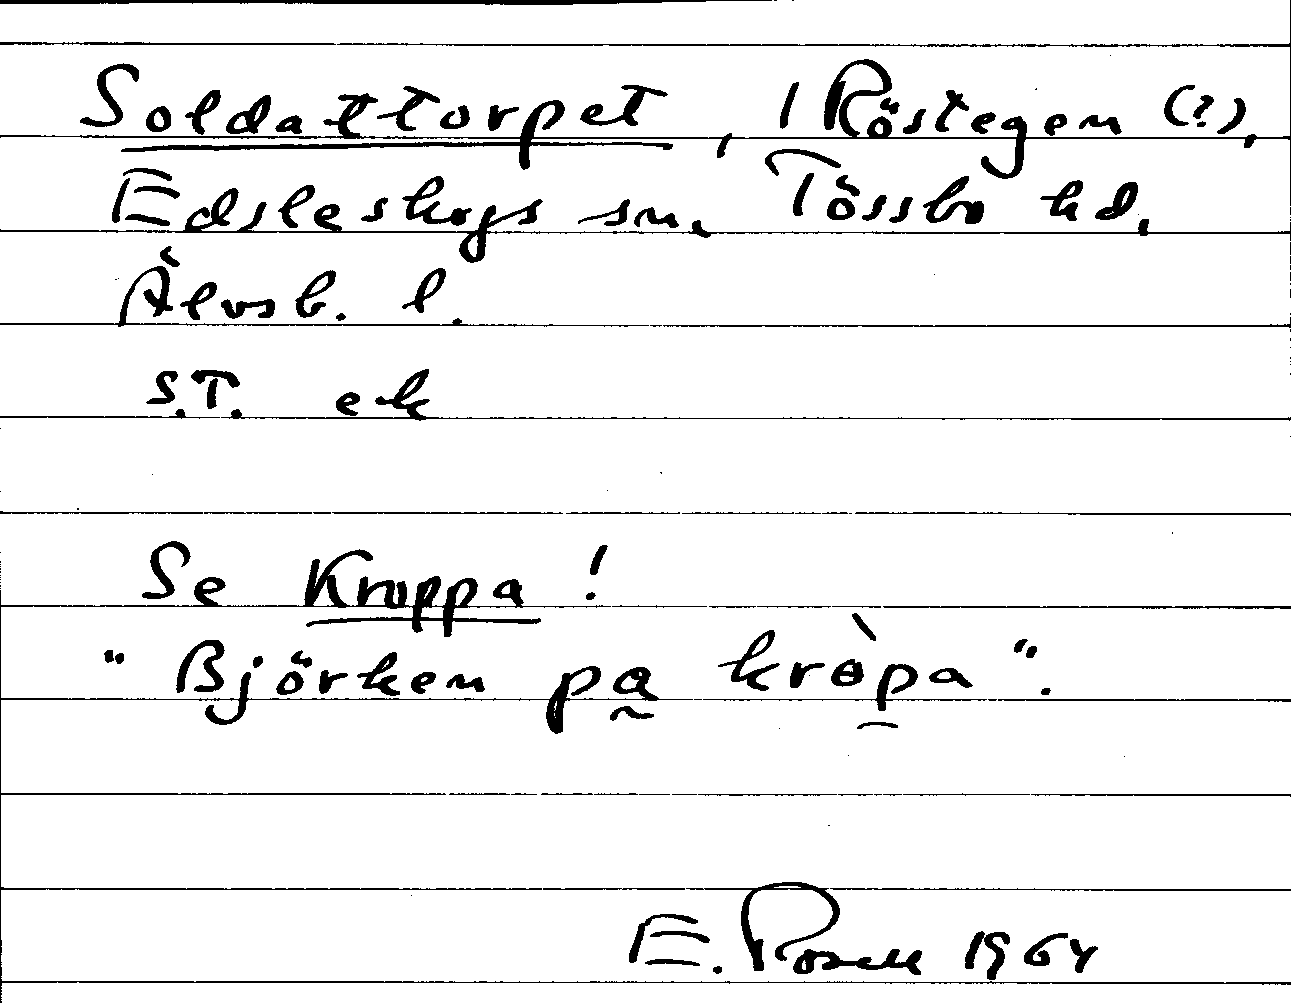 Soldattorpet, 1 Röstegen (?),
Edsleskogs sn. Tössbo hd.
Älvsb. l.
S.T. ek
Se Kroppa!
"Björken pa kròpa".
E. Rosell 1964